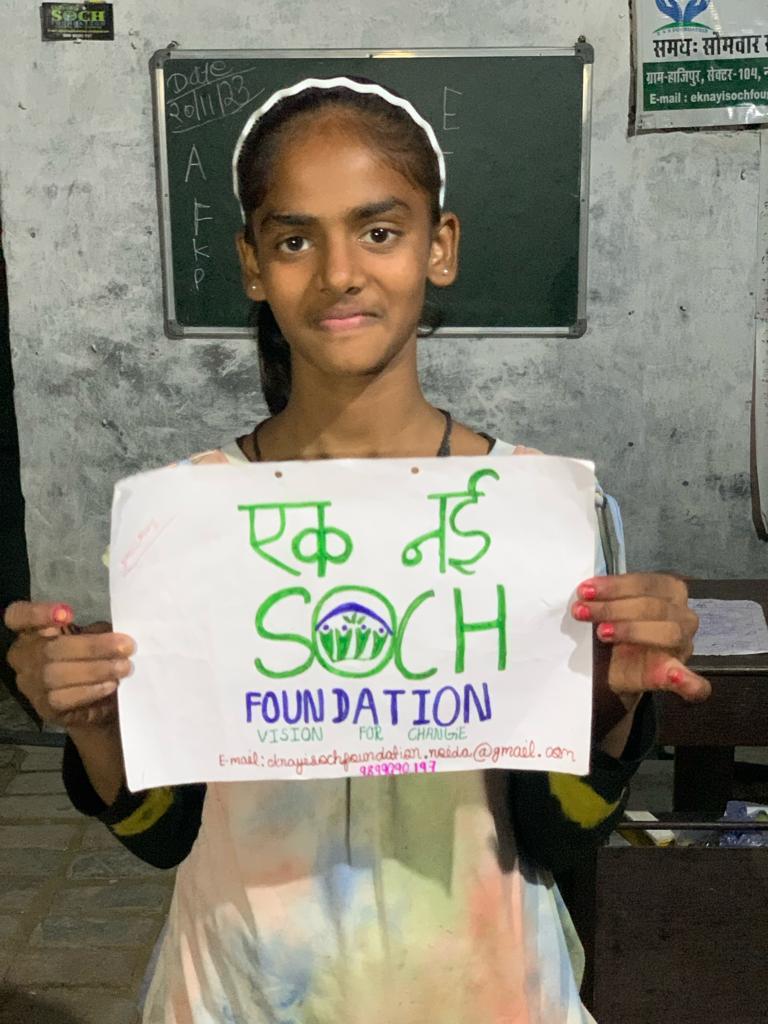 SOCH
Date
20/11/23
E
A
F
K
P
समय: सोमवार
ग्राम-हाजिपुर, सेक्टर-104,
E-mail : eknayisochfou
एक नई
SOCH
FOUNDATION
VISION FOR CHANGE
E-mail: eknayisochfoundation.noida@gmail.com
9899290197